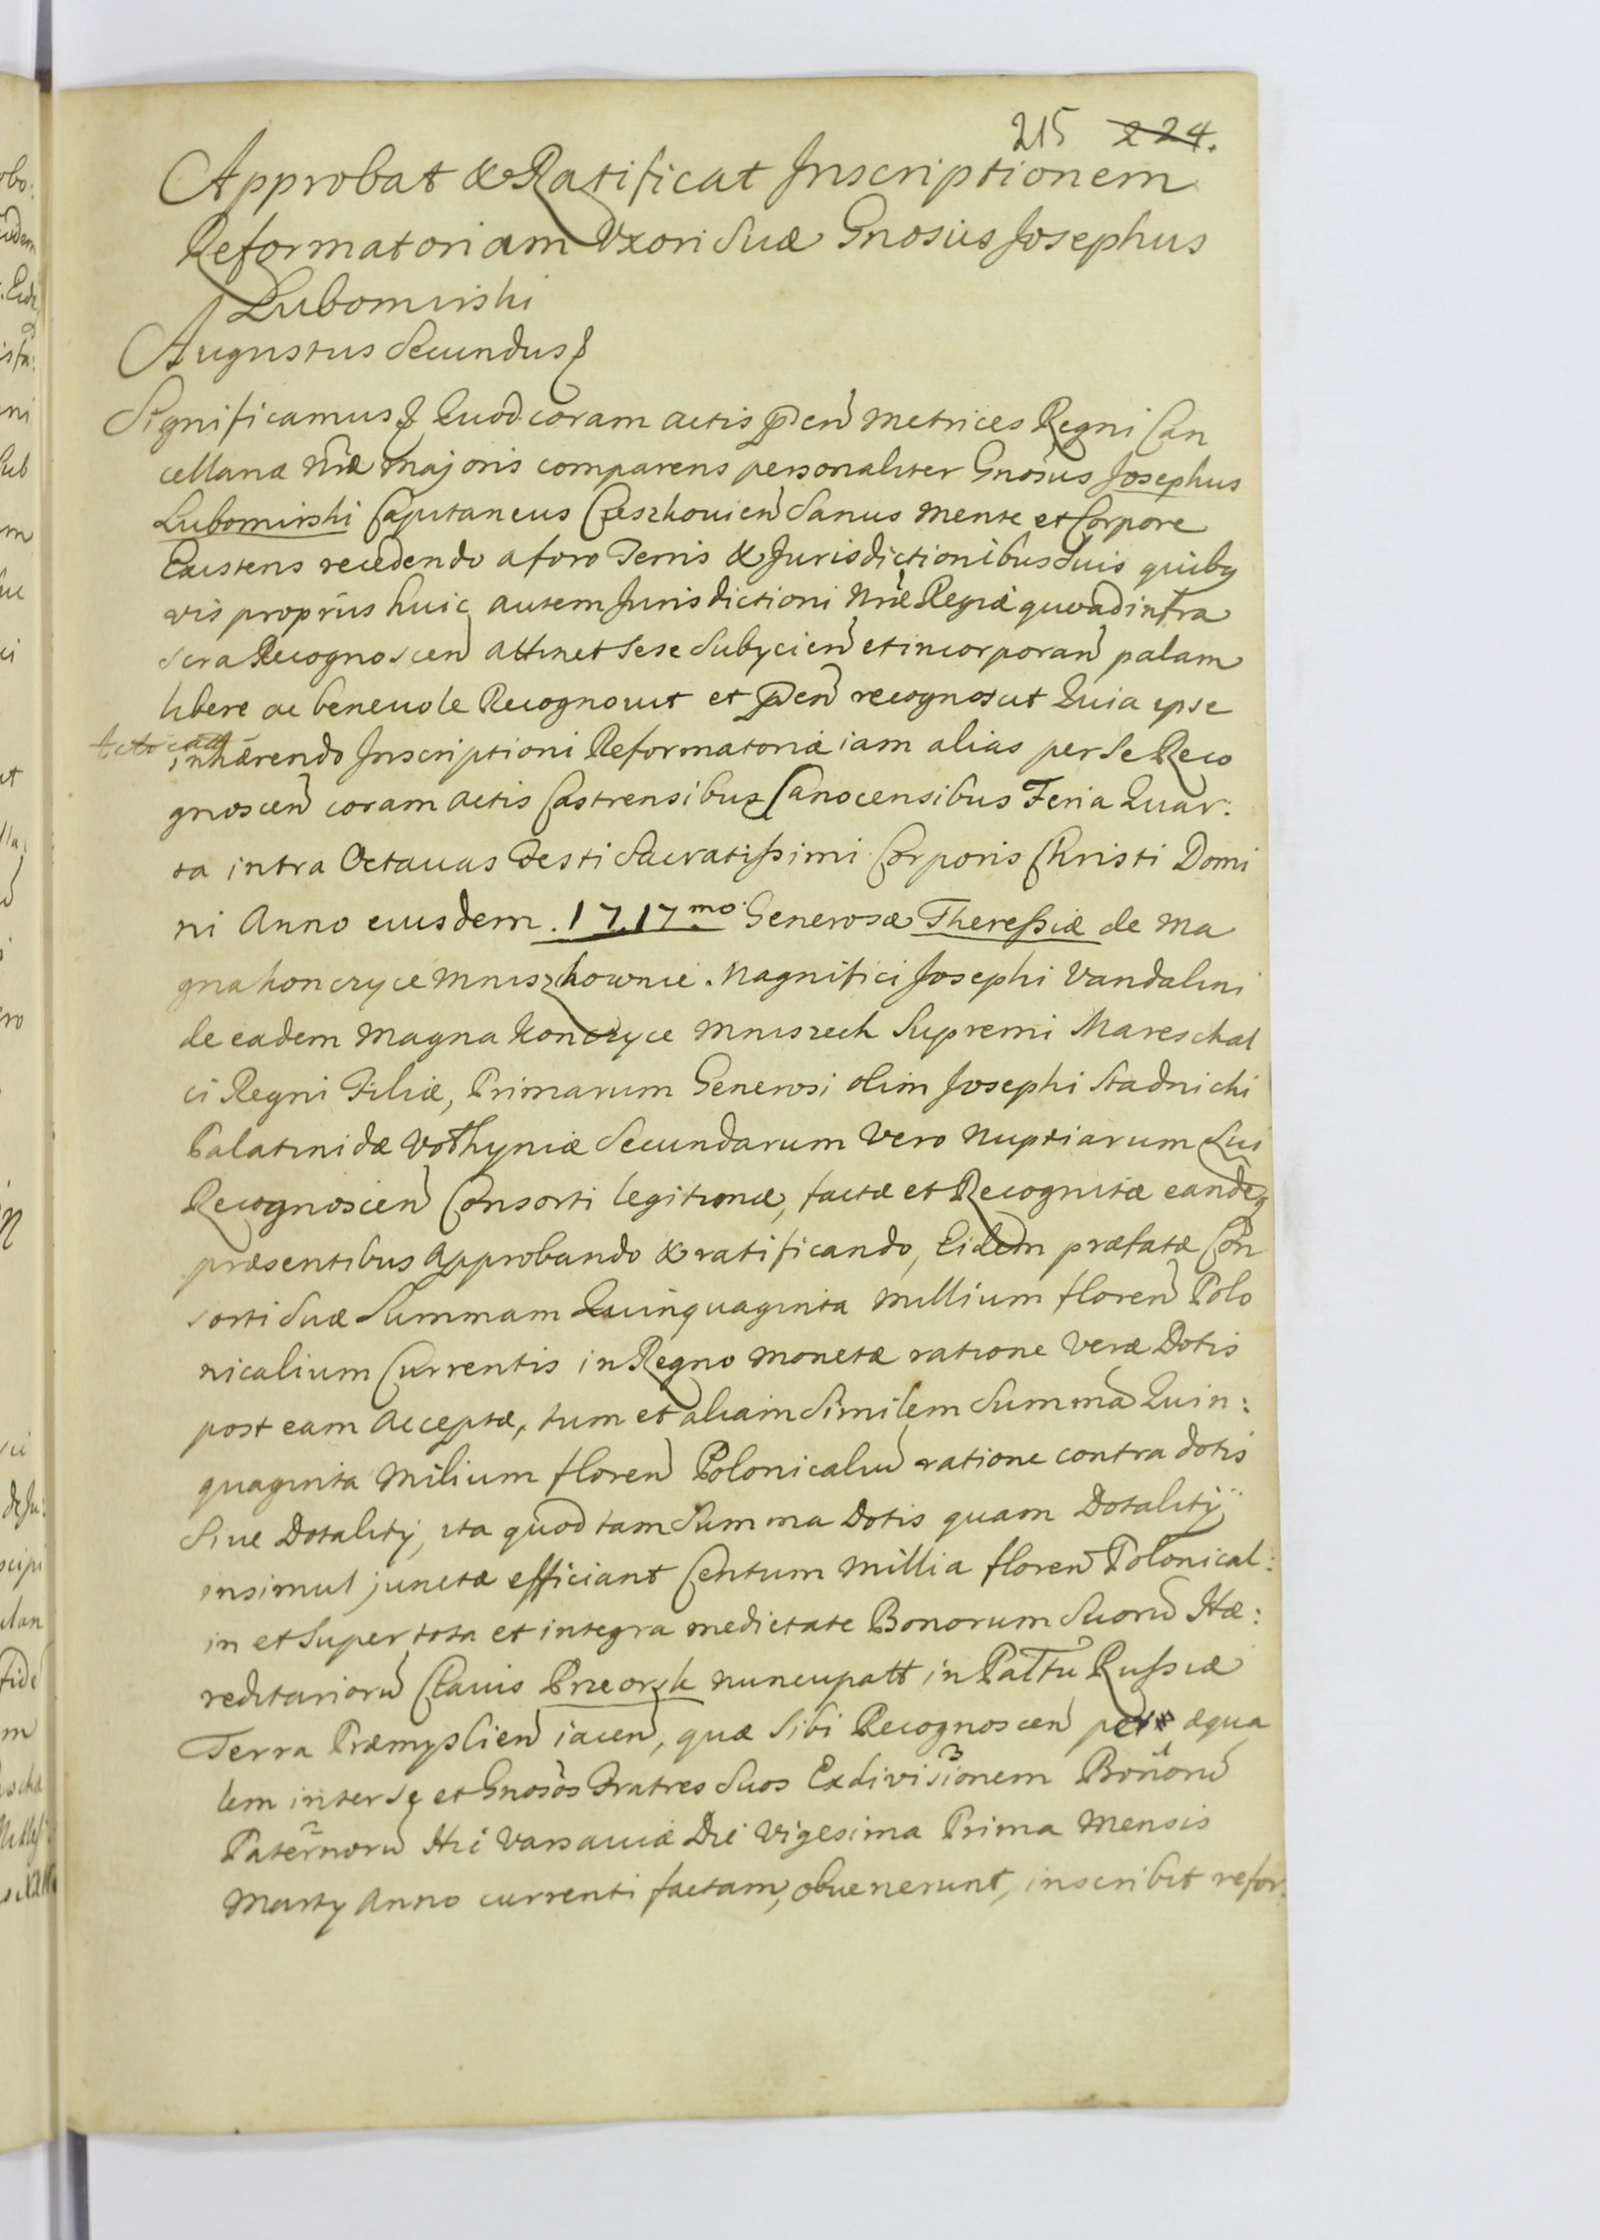 215 224.
Approbat & Ratificat Inscriptionem
Reformatoriam Uxori Suæ Gnosus Josephus
Lubomirski
Augustus Secundus
Significamus Quod coram actis pñ Metrices Regni Can
cellariæ nræ majoris comparens personaliter Gnosus Josephus
Lubomirski Capitaneus Czeszkovieñ Sanus mente et Corpore
Existens recedendo a foro Terris & Jurisdictionibus Suis quibq
vis proprijs huic autem Jurisdictioni nræ Regiæ quoad infra
scra Recognosceñ attinet sese Subijcieñ et incorporañ palam
libere ac benevole Recognovit et pñ recognoscit Quia ipse
inhærendo Inscriptioni Reformatoriæ iam alias per se Reco
gnosceñ coram actis Castrensibus Sanocensibus Feria Quar:
ta intra Octavas Festi Sacratissimi Corporis Christi Domi
ni Anno eiusdem .1717mo. Generosæ Theressiæ de Ma
gna Konczyce Mniszkownie. Magnifici Josephi Vandalini
de eadem Magna Konczyce Mniszech Supremi Mareschal
ci Regni Filiæ, Primarum Generosi olim Josephi Stadnicki
Palatinidæ Volhyniæ Secundarum vero nuptiarum Sui
Recognosceñ Consorti legitimæ, factæ et Recognitæ eandeq
præsentibus approbando & ratificando, Eidem præfatæ Con
sorti Suæ Summam Quinquaginta Millium floreñ Polo
nicalium Currentis in Regno monetæ ratione veræ Dotis
post eam Acceptæ, tum et aliam Similem Summã Quin:
quaginta Milium floreñ Polonicaliũ ratione contra dotis
Sive Dotalitij, ita quod tam Summa Dotis quam Dotalitij
insimul junctæ efficiant Centum Millia floreñ Polonical:
in et Super tota et integra medietate Bonorum Suorũ Hæ:
reditariorũ Clavis Przeorsk nuncupatt in Palttu Russiæ
Terra Præmyslieñ iaceñ, quæ Sibi Recognosceñ per æqua
lem inter Se et Gnosos Fratres Suos Exdivisionem Bonorũ
Paternorũ Hic Varsaviæ Die Vigesima Prima Mensis
Martij Anno currenti factam, obvenerunt, inscribit refor: